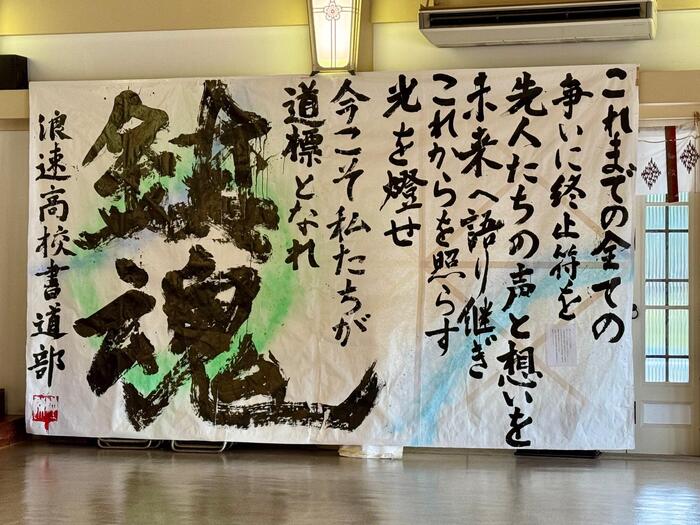 これまでの全ての
争いに終止符を
先人たちの声と想いを
未来へ語り継ぎ
これからを照らす
光を燈せ
今こそ私たちが
道標となれ
鎮魂
浪速高校書道部